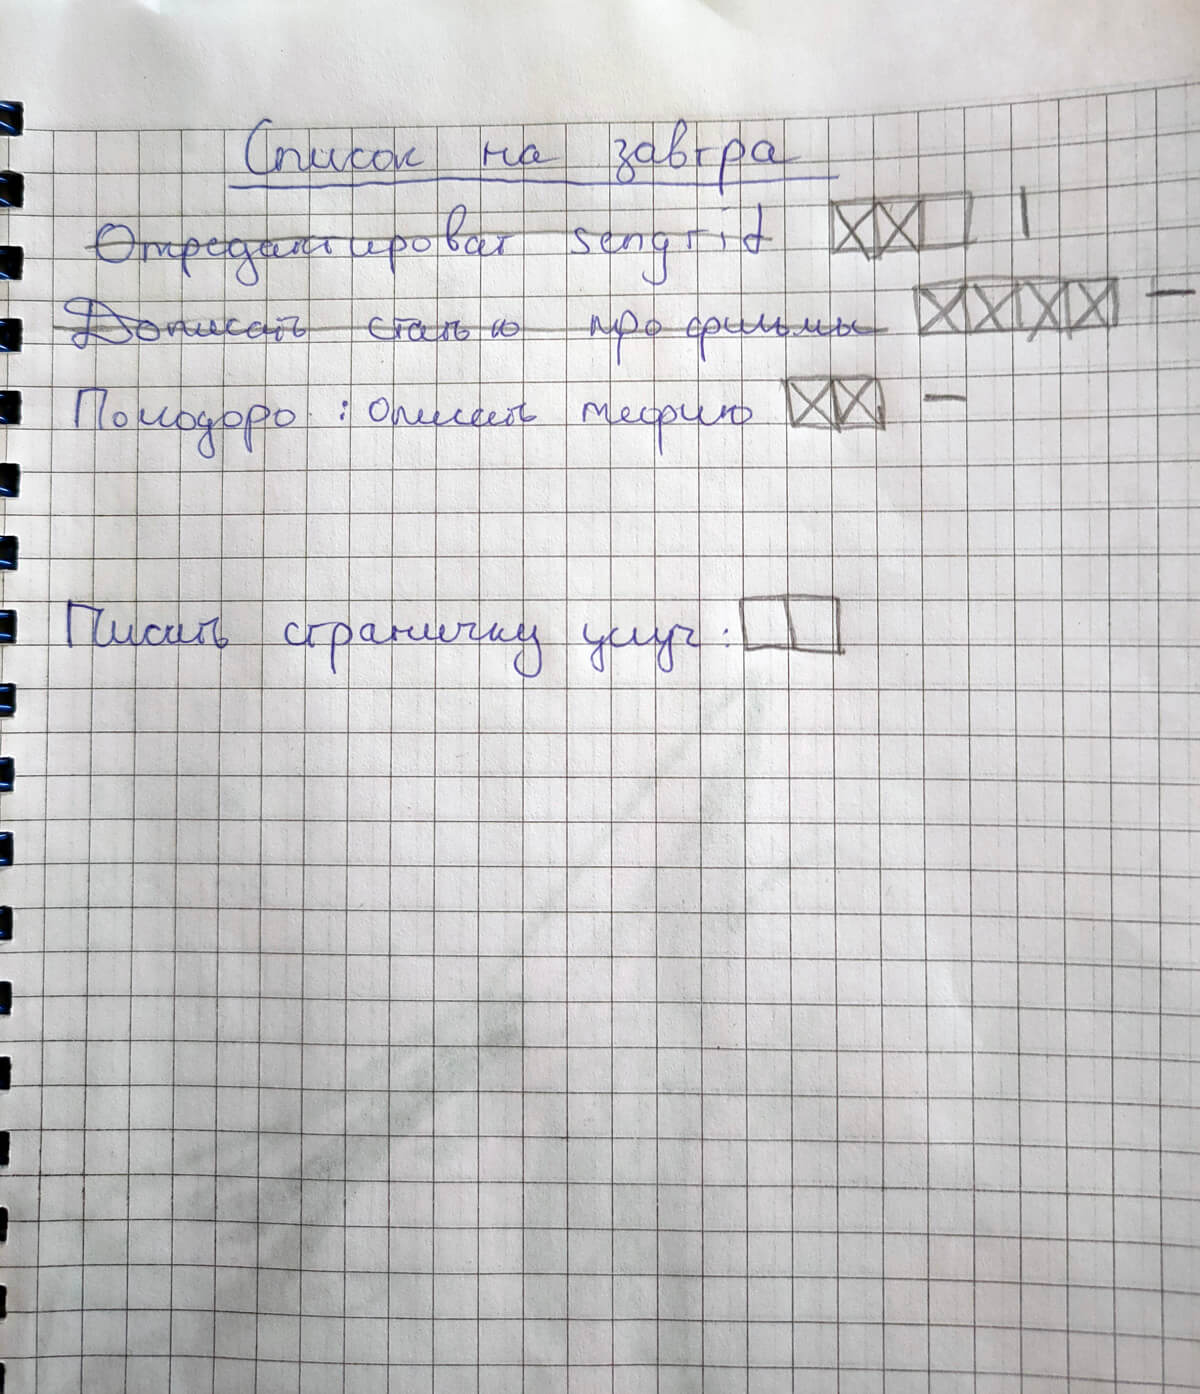 Список на завтра
Отредактироват sengrid
Дописать статью про фильмы
Помодоро: описать теорию
Писать страничку услуг: